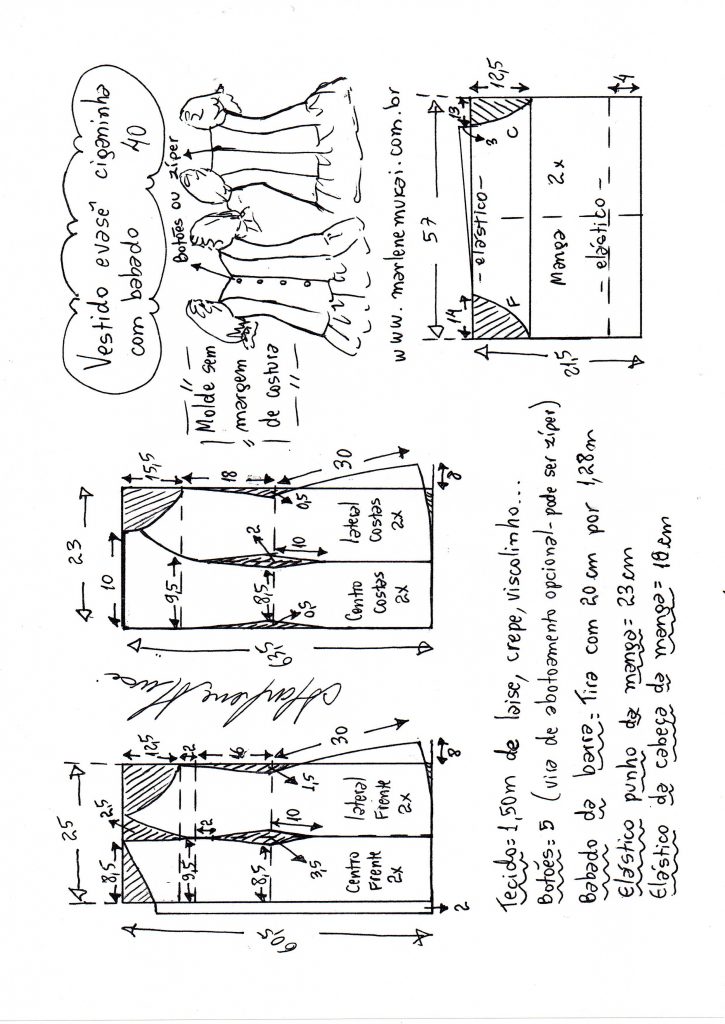 Vestido evasê ciganinha
com babado 40
Botões ou zíper
Molde sem
margem
de costura
www.marlenemukai.com.br
25
8,5
2,5
12,5
2
9,5
2
16
8,5
3,5
1,5
10
30
Centro
Frente
2x
lateral
Frente
2x
60,5
2
8
23
10
15,5
9,5
18
8,5
2
0,5
0,5
10
30
Centro
Costas
2x
lateral
Costas
2x
63,5
8
57
14
13
3
12,5
F
C
- elástico -
Manga 2x
- elástico -
21,5
4
Tecido=1,50m de laise, crepe, viscolinho...
Botões= 5 (vira de abotoamento opcional- pode ser zíper)
Babado da barra= Tira com 20 cm por 1,28m
Elástico punho da manga= 23cm
Elástico da cabeça da manga= 18cm